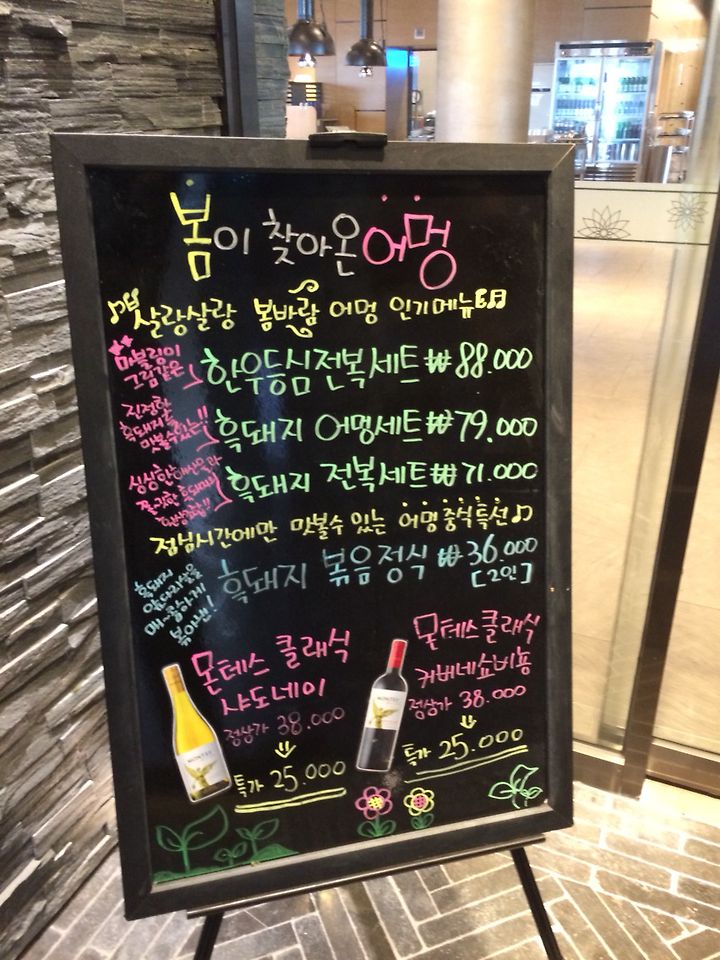 봄이 찾아온 어멍
살랑살랑 봄바람 어멍 인기메뉴
마블링이
그림같은
한우등심전복세트 ₩88.000
진정한
흑돼지를
맛볼수있는!!
흑돼지 어멍세트 ₩79.000
싱싱한해산물과
쫄깃한 흑돼지의
환상궁합!!
흑돼지 전복세트 ₩71.000
점심시간에만 맛볼수 있는 어멍중식특선
흑돼지
앞다리살을
매~콤하게
볶아낸!
흑돼지 볶음정식 ₩36.000
[2인]
몬테스 클래식
샤도네이
정상가 38.000
특가 25.000
몬테스클래식
커버네쇼비뇽
정상가 38.000
특가 25.000
MONTES
MONTES